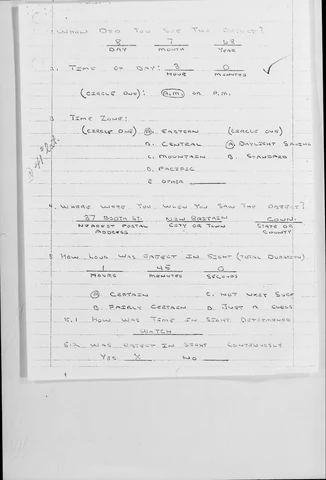 1. WHEN DID YOU SEE THE OBJECT?
8 7 68
DAY MONTH YEAR
2. TIME OF DAY: 3 0
HOUR MINUTES
(CIRCLE ONE): A.M. OR P.M.
3. TIME ZONE:
(CIRCLE ONE) A. EASTERN (CIRCLE ONE)
B. CENTRAL A. DAYLIGHT SAVING
C. MOUNTAIN B. STANDARD
D. PACIFIC
E. OTHER
4. WHERE WERE YOU WHEN YOU SAW THE OBJECT?
37 BOOTH ST. NEW BRITAIN CONN.
NEAREST POSTAL CITY OR TOWN STATE OR
ADDRESS COUNTY
5. HOW LONG WAS OBJECT IN SIGHT (TOTAL DURATION)
1 45 0
HOURS MINUTES SECONDS
A. CERTAIN C. NOT VERY SURE
B. FAIRLY CERTAIN D. JUST A GUESS
5.1 HOW WAS TIME IN SIGHT DETERMINED
WATCH
5.2 WAS OBJECT IN SIGHT CONTINUOUSLY
YES X NO